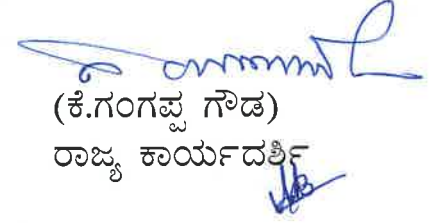 (ಕೆ.ಗಂಗಪ್ಪ ಗೌಡ)
ರಾಜ್ಯ ಕಾರ್ಯದರ್ಶಿ